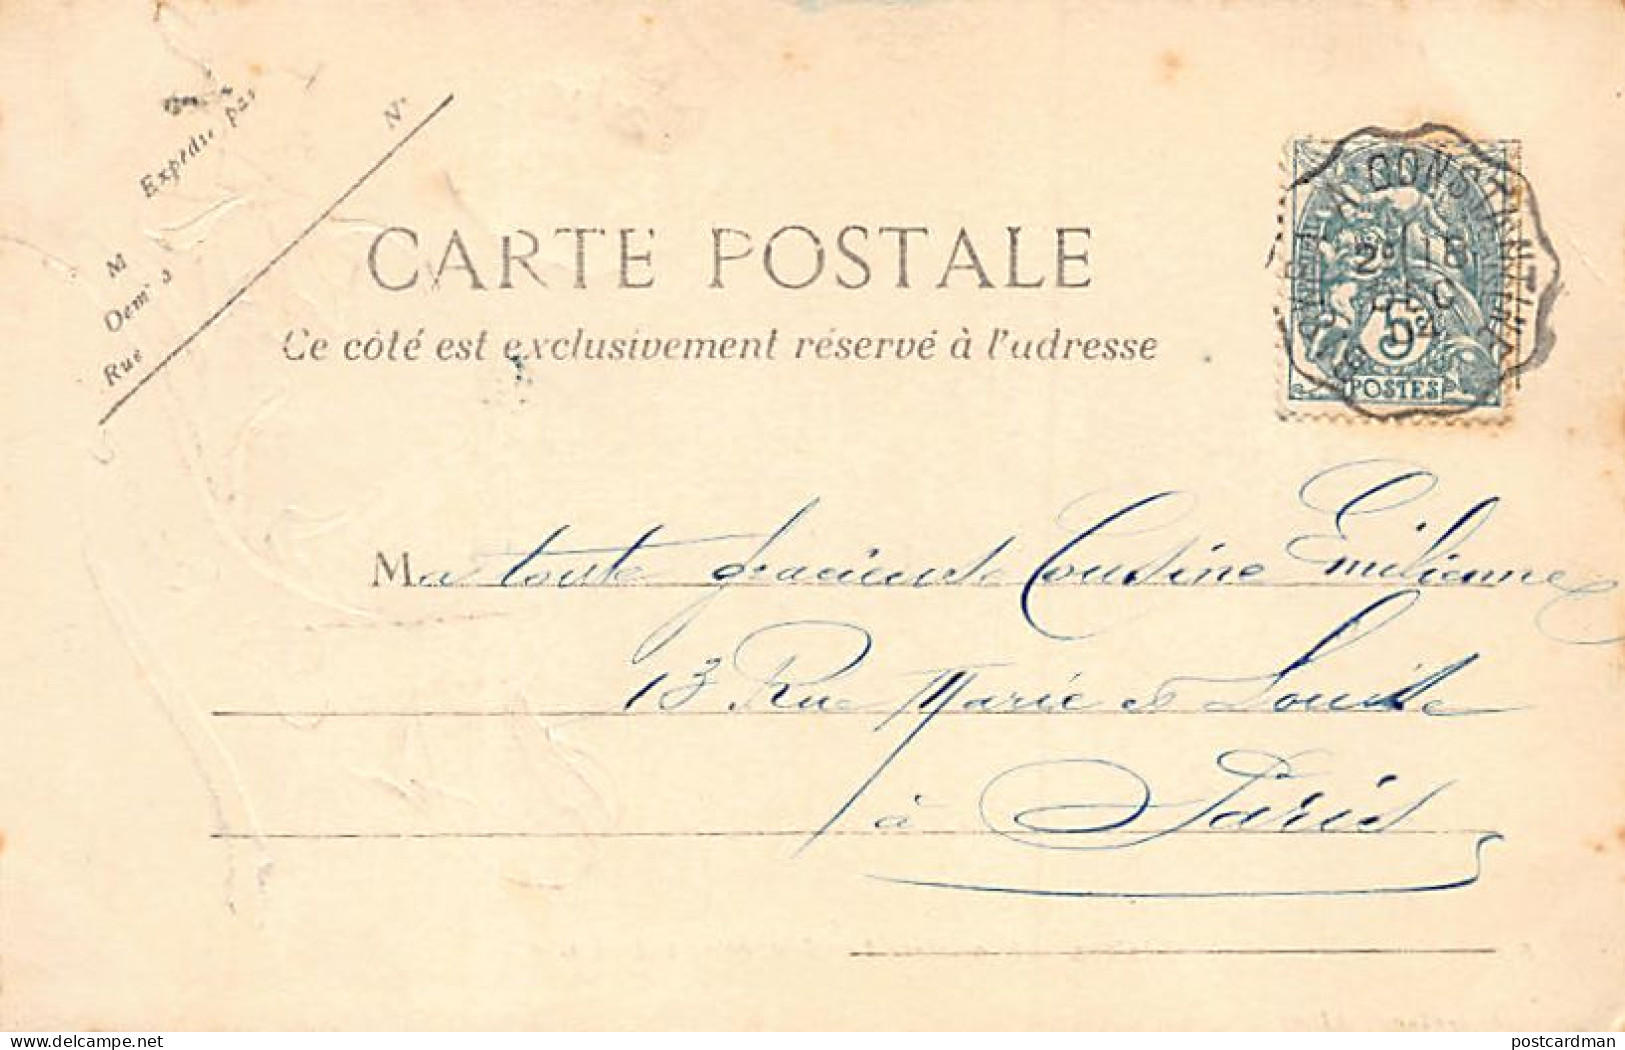 Expédié par
M
Dem^t à
Rue N°
CARTE POSTALE
Ce côté est exclusivement réservé à l'adresse
A CONSTANTINE
2° 15
DEC
04
5
POSTES
Ma toute gracieuse Cousine Emilienne
13 Rue Marie et Louise
à Paris
delcampe.net
postcardman